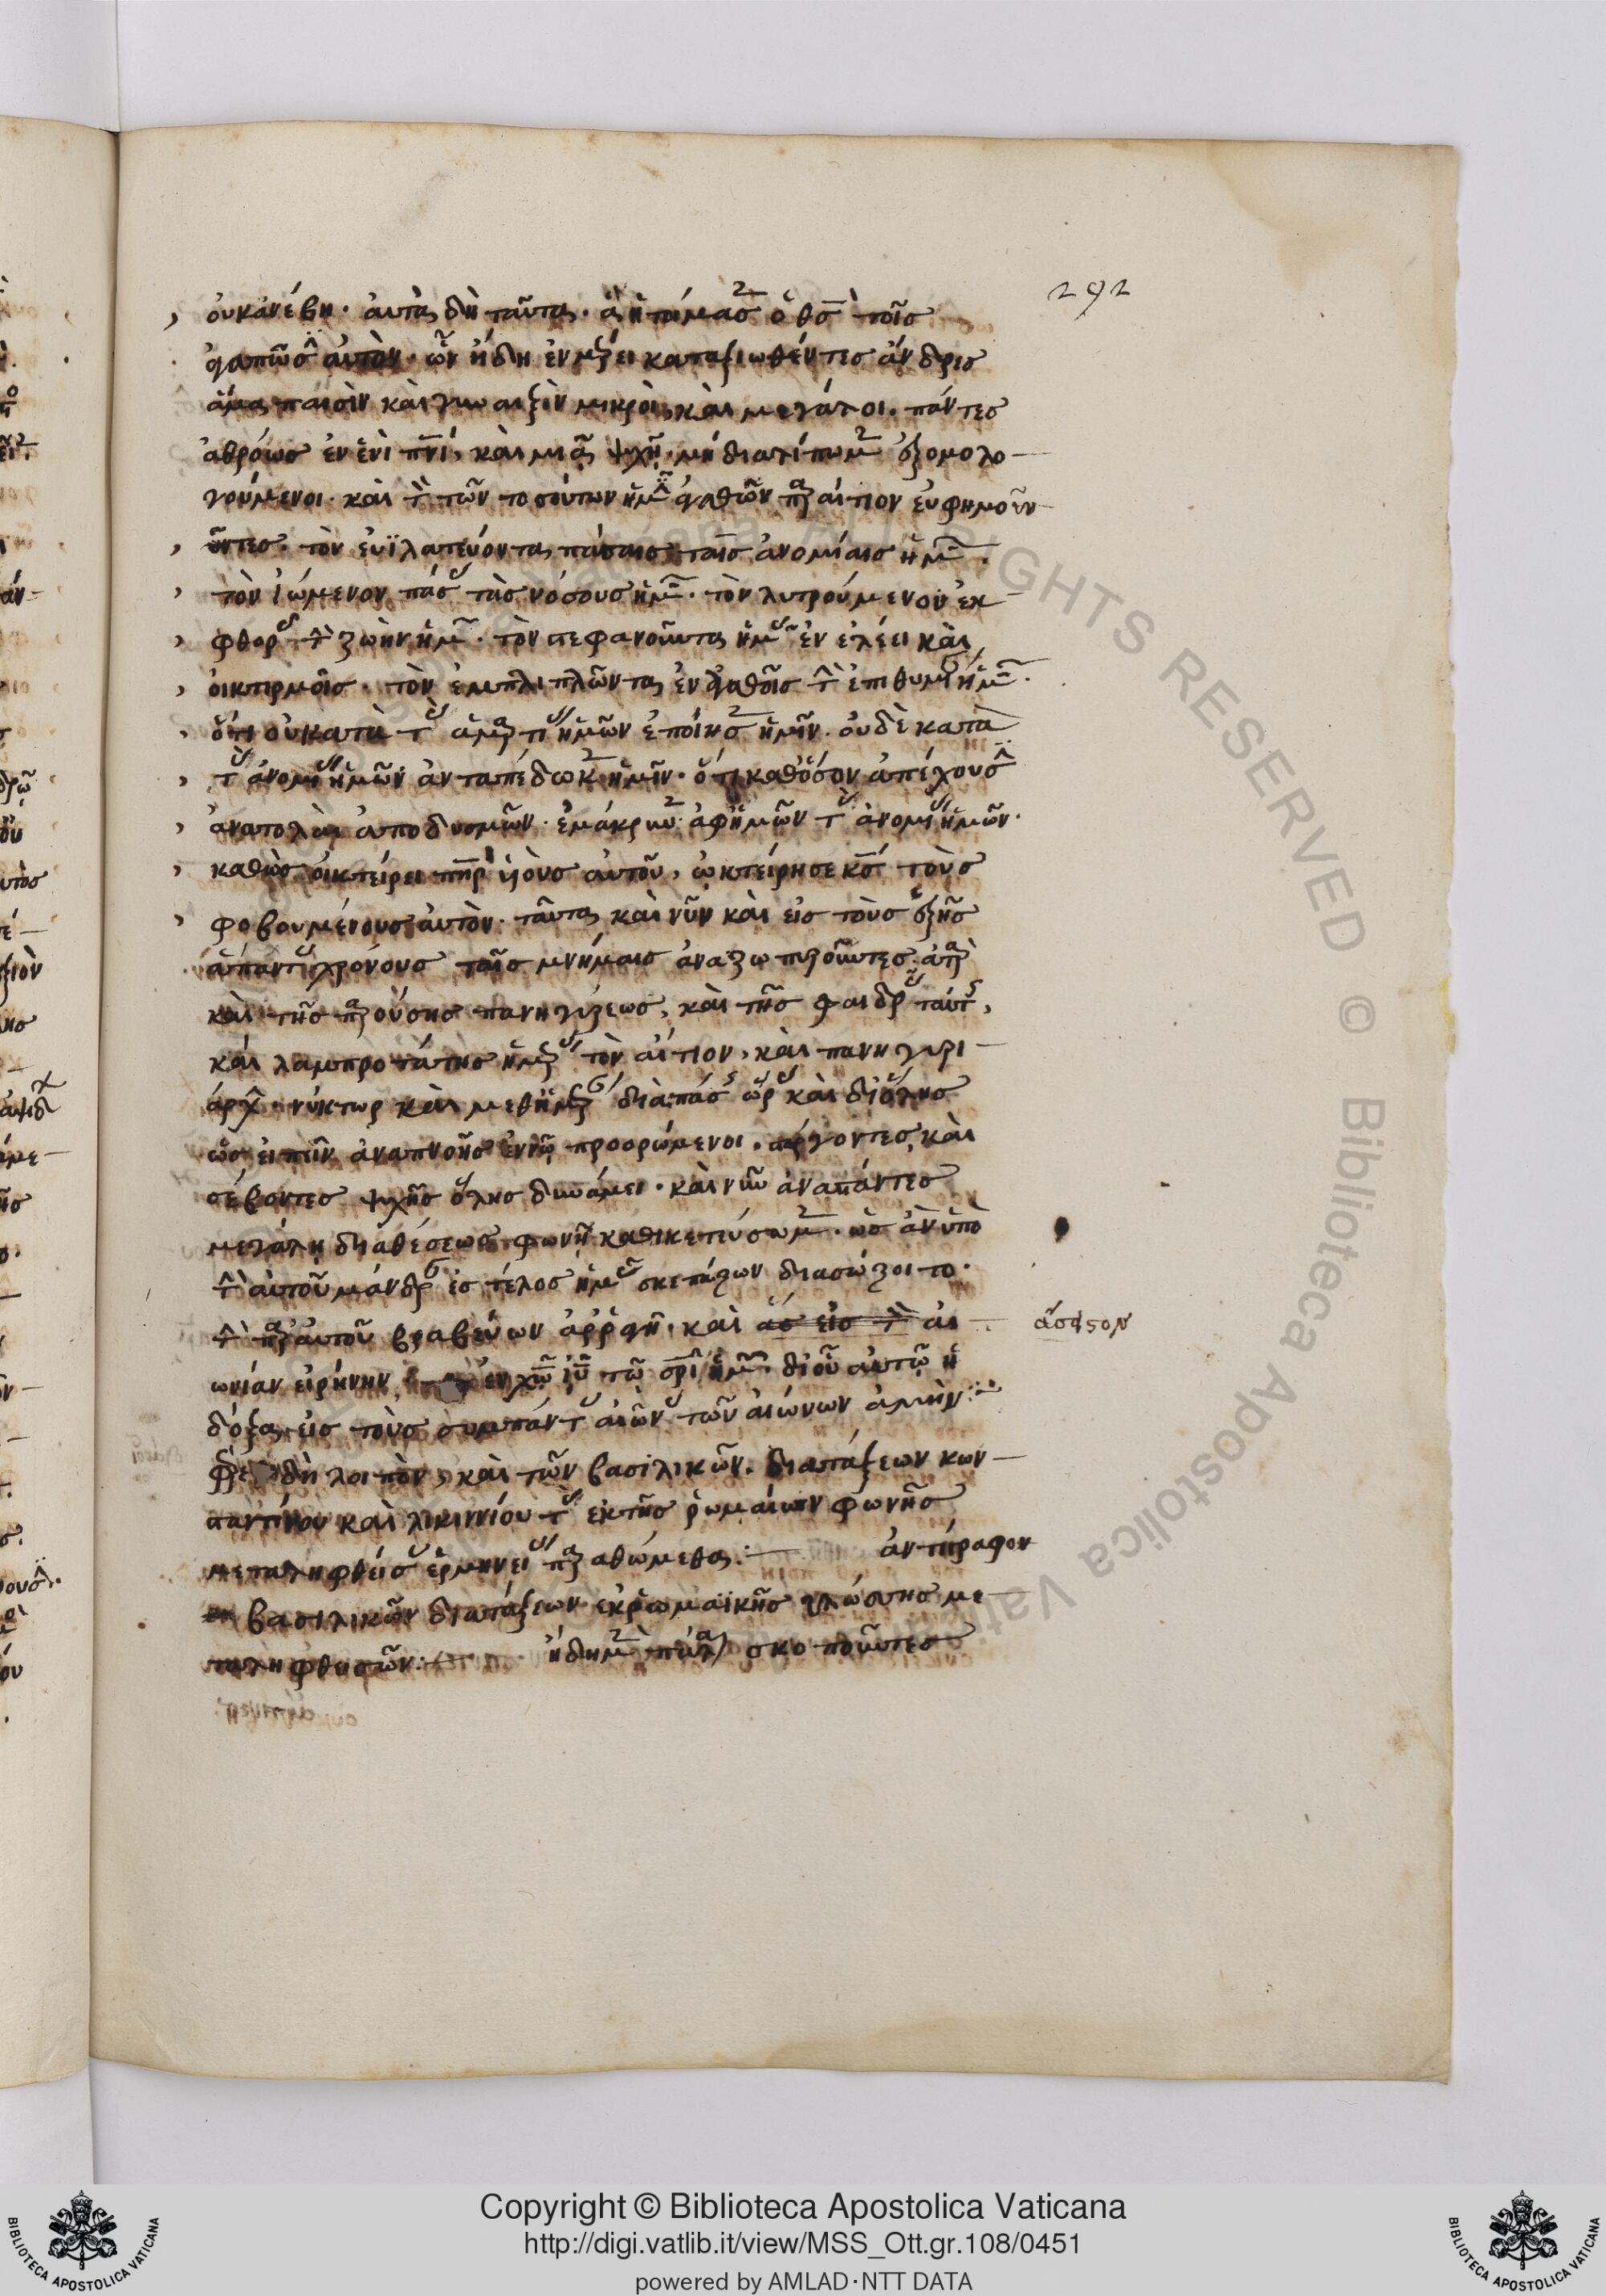 292
οὐκ ἀνέβη. αὐτὰ δὴ ταῦτα. ἃ ἡτοίμασεν ὁ θσ τοῖσ
ἀγαπῶσιν αὐτὸν. ὧν ἤδη ἐν μέξει καταξιωθέντεσ ἄνδρεσ
ἅμα παισὶν καὶ γυναιξὶν μικροὶ καὶ μεγάλοι. πάντεσ
ἀθρόωσ ἐν ἑνὶ πνι, καὶ μιᾷ ψυχῇ μὴ διαλίπωμεν ἐξομολο-
γούμενοι. καὶ τὸν τῶν τοσούτων ἡμῖν ἀγαθῶν παραίτιον εὐφημοῦν
τεσ. τὸν εὐϊλατεύοντα πάσαισ ταῖσ ἀνομίαισ ἡμῶν.
τὸν ἰώμενον πάσασ τὰσ νόσουσ ἡμῶν. τὸν λυτρούμενον ἐκ
φθορᾶσ τὴν ζωὴν ἡμῶν. τὸν στεφανοῦντα ἡμᾶσ ἐν ἐλέει καὶ
οἰκτιρμοῖσ. τὸν ἐμπιπλῶντα ἐν ἀγαθοῖσ τὴν ἐπιθυμίαν ἡμῶν.
ὅτι οὐ κατὰ τὰσ ἁμαρτίασ ἡμῶν ἐποίησεν ἡμῖν. οὐδὲ κατὰ
τὰσ ἀνομίασ ἡμῶν ἀνταπέδωκεν ἡμῖν. ὅτι καθόσον ἀπέχουσιν
ἀνατολαὶ ἀπὸ δυσμῶν. ἐμάκρυνεν ἀφ ἡμῶν τὰσ ἀνομίασ ἡμῶν.
καθὼσ οἰκτείρει πηρ υἱοὺσ αὐτοῦ, ὠκτείρησε κσ τοὺσ
φοβουμένουσ αὐτὸν. ταῦτα καὶ νῦν καὶ εἰσ τοὺσ ἑξῆσ
ἅπαντασ χρόνουσ ταῖσ μνήμαισ ἀναζωπυροῦντεσ. ἀτὰρ
καὶ τῆσ παρούσησ πανηγύρεωσ, καὶ τῆσ φαιδρᾶσ ταύτησ,
καὶ λαμπροτάτησ ἡμέρασ τὸν αἴτιον, καὶ πανηγυρι-
άρχην. νύκτωρ καὶ μεθημέραν διὰ πάσησ ὥρασ καὶ δι ὅλησ
ὡσ εἰπεῖν ἀναπνοῆσ ἐν νῷ προορώμενοι. στέργοντεσ καὶ
σέβοντεσ ψυχῆσ ὅλησ δυνάμει. καὶ νῦν ἀναστάντεσ
μεγάλῃ διαθέσεωσ φωνῇ καθικετεύσωμεν. ὡσ ἂν ὑπὸ
τὴν αὐτοῦ μάνδραν ἐσ τέλοσ ἡμᾶσ σκεπάζων διασώζοιτο.
τὴν παρ αὐτοῦ βραβεύων ἀρραγῆ. καὶ ἀσ εἰσ τὴν αἰ-
ἄσειστον
ωνίαν εἰρήνην ἐν χῶ ιῦ τῷ σρι ἡμῶν. δι οὗ αὐτῷ ἡ
δόξα εἰσ τοὺσ σύμπαντασ αἰῶνασ τῶν αἰώνων ἀμὴν:
Φέρε δὴ λοιπὸν, καὶ τῶν βασιλικῶν. διατάξεων κων-
σταντίνου καὶ λικιννίου τὰσ ἐκ τῆσ ῥωμαίων φωνῆσ
μεταληφθείσασ ἑρμηνείασ παραθώμεθα:- ἀντίγραφον
βασιλικῶν διατάξεων ἐκ ῥωμαϊκῆσ γλώσσησ με-
ταληφθεισῶν: ἤδη μὲν πάλαι σκοποῦντεσ